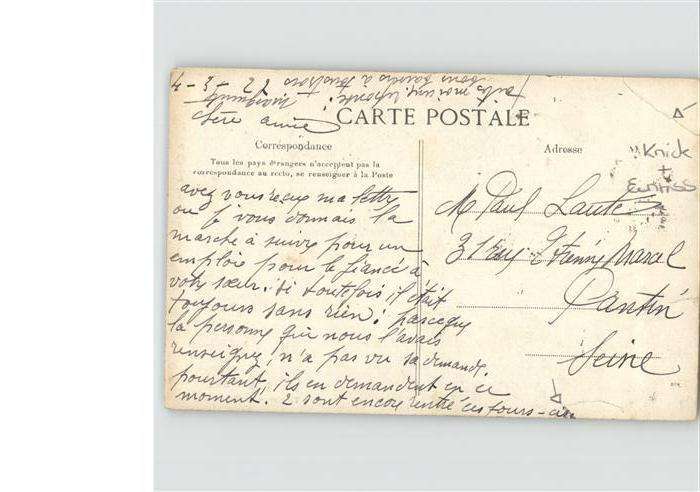 CARTE POSTALE
Chère amie
Correspondance
Tous les pays étrangers n'acceptent pas la
correspondance au recto, se renseigner à la Poste
avez vous reçu ma lettre
ou je vous donnais la
marche à suivre pour un
emploie pour le fiancé à
votre sœur. si toutefois il était
toujours sans rien: parceque
la personne que nous l'avais
renseigné, n'a pas vu sa demande.
pourtant, ils en demandent en ce
moment. 2 sont encore rentré ces jours-ci
Adresse
M Paul
31 Rue Etienne Marcel
Pantin
Seine
Knick
+